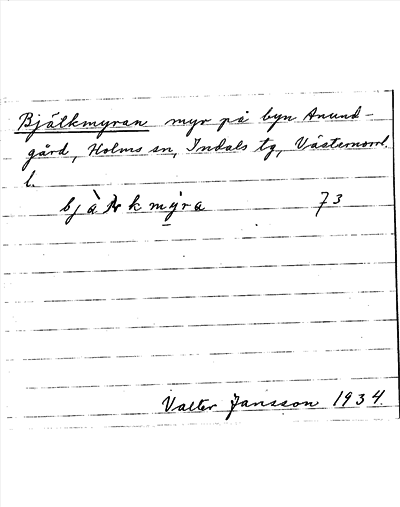 Bjälkmyran myr på byn Anund-
gård, Holms sn, Indals tg, Västernorrl.
l.
bjàlkmy̲ra 73
Valter Jansson 1934.